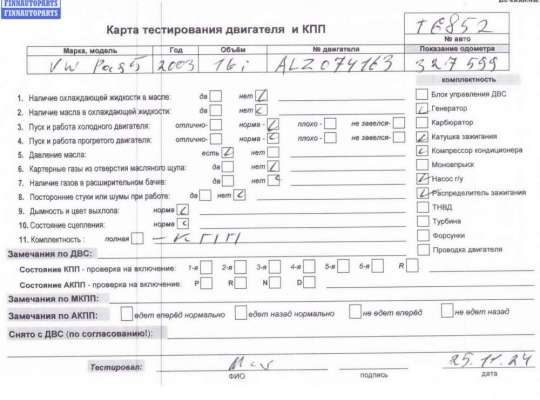 FINNAUTOPARTS
FINNAUTOPARTS
Карта тестирования двигателя и КПП
TG852
№ авто
Марка, модель Год Объём № двигателя Показание одометра
VW Pas5 2003 16i ALZ074163 327599
комплектность
1. Наличие охлаждающей жидкости в масле: да нет
2. Наличие масла в охлаждающей жидкости: да нет
3. Пуск и работа холодного двигателя: отлично- норма - плохо - не завелся-
4. Пуск и работа прогретого двигателя: отлично- норма - плохо - не завелся-
5. Давление масла: есть нет
6. Картерные газы из отверстия масляного щупа: да нет
7. Наличие газов в расширительном бачке: да нет
8. Посторонние стуки или шумы при работе: да нет
9. Дымность и цвет выхлопа: норма
10. Состояние сцепления: норма
11. Комплектность : полная - КПП
Блок управления ДВС
Генератор
Карбюратор
Катушка зажигания
Компрессор кондиционера
Моновпрыск
Насос г/у
Распределитель зажигания
ТНВД
Турбина
Форсунки
Проводка двигателя
Замечания по ДВС:
Состояние КПП - проверка на включение: 1-я 2-я 3-я 4-я 5-я 6-я R
Состояние АКПП - проверка на включение: P R N D
Замечания по МКПП:
Замечания по АКПП: едет вперёд нормально едет назад нормально не едет вперёд не едет назад
Снято с ДВС (по согласованию!):
Тестировал: 25.11.24
ФИО подпись дата